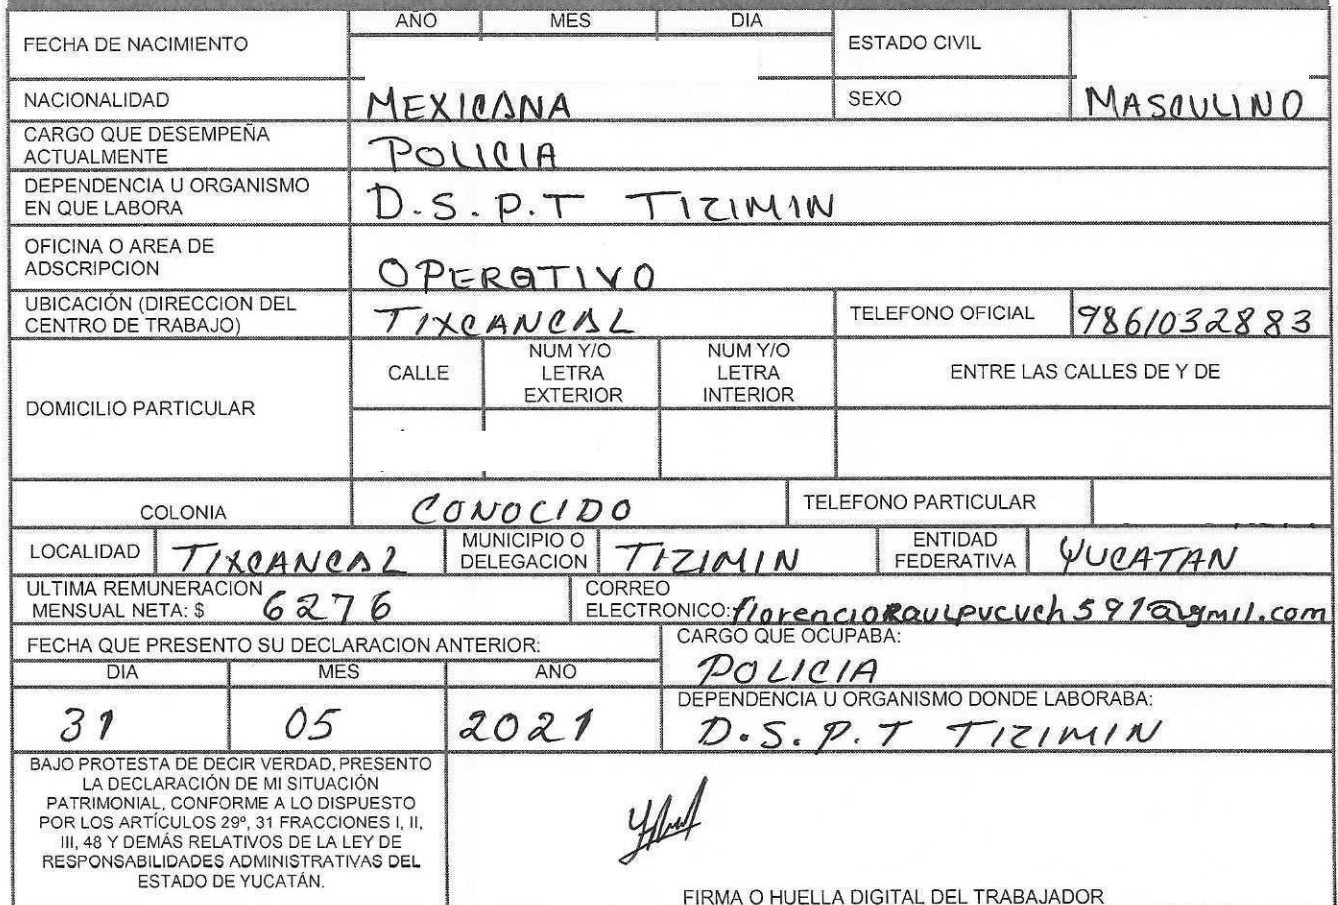 AÑO MES DIA
FECHA DE NACIMIENTO ESTADO CIVIL
NACIONALIDAD MEXICANA SEXO MASCULINO
CARGO QUE DESEMPEÑA ACTUALMENTE POLICIA
DEPENDENCIA U ORGANISMO EN QUE LABORA D.S.P.T TIZIMIN
OFICINA O AREA DE ADSCRIPCION OPERATIVO
UBICACIÓN (DIRECCION DEL CENTRO DE TRABAJO) TIXCANCAL TELEFONO OFICIAL 9861032883
DOMICILIO PARTICULAR
CALLE
NUM Y/O LETRA EXTERIOR
NUM Y/O LETRA INTERIOR
ENTRE LAS CALLES DE Y DE
COLONIA CONOCIDO TELEFONO PARTICULAR
LOCALIDAD TIXCANCAL MUNICIPIO O DELEGACION TIZIMIN ENTIDAD FEDERATIVA YUCATAN
ULTIMA REMUNERACION MENSUAL NETA: $ 6276
CORREO ELECTRONICO: florencioRaulpucuch591@gmil.com
FECHA QUE PRESENTO SU DECLARACION ANTERIOR:
DIA MES AÑO
31 05 2021
CARGO QUE OCUPABA:
POLICIA
DEPENDENCIA U ORGANISMO DONDE LABORABA:
D.S.P.T TIZIMIN
BAJO PROTESTA DE DECIR VERDAD, PRESENTO
LA DECLARACIÓN DE MI SITUACIÓN
PATRIMONIAL, CONFORME A LO DISPUESTO
POR LOS ARTÍCULOS 29º, 31 FRACCIONES I, II,
III, 48 Y DEMÁS RELATIVOS DE LA LEY DE
RESPONSABILIDADES ADMINISTRATIVAS DEL
ESTADO DE YUCATÁN.
FIRMA O HUELLA DIGITAL DEL TRABAJADOR